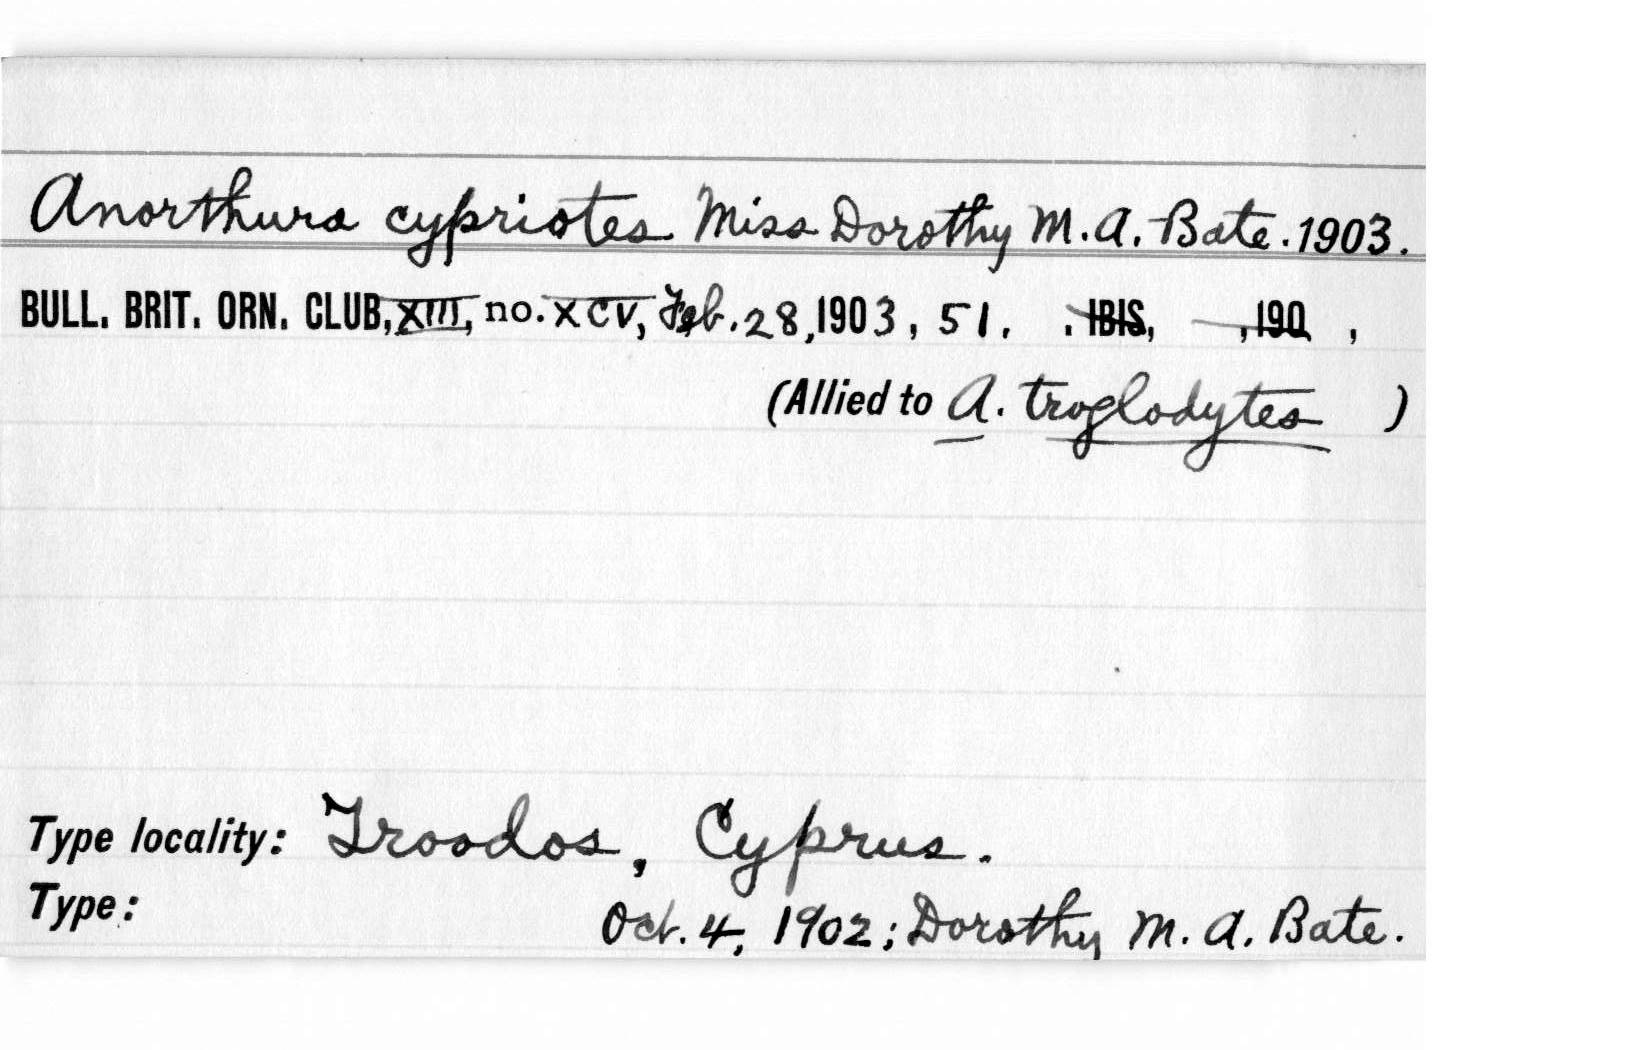 Anorthura cypriotes Miss Dorothy M.A. Bate. 1903.
BULL. BRIT. ORN. CLUB, XIII, no. XCV, Feb. 28, 1903, 51. . IBIS, , 190 ,
(Allied to A. troglodytes )
Type locality: Troodos, Cyprus.
Type: Oct. 4, 1902; Dorothy M. A. Bate.